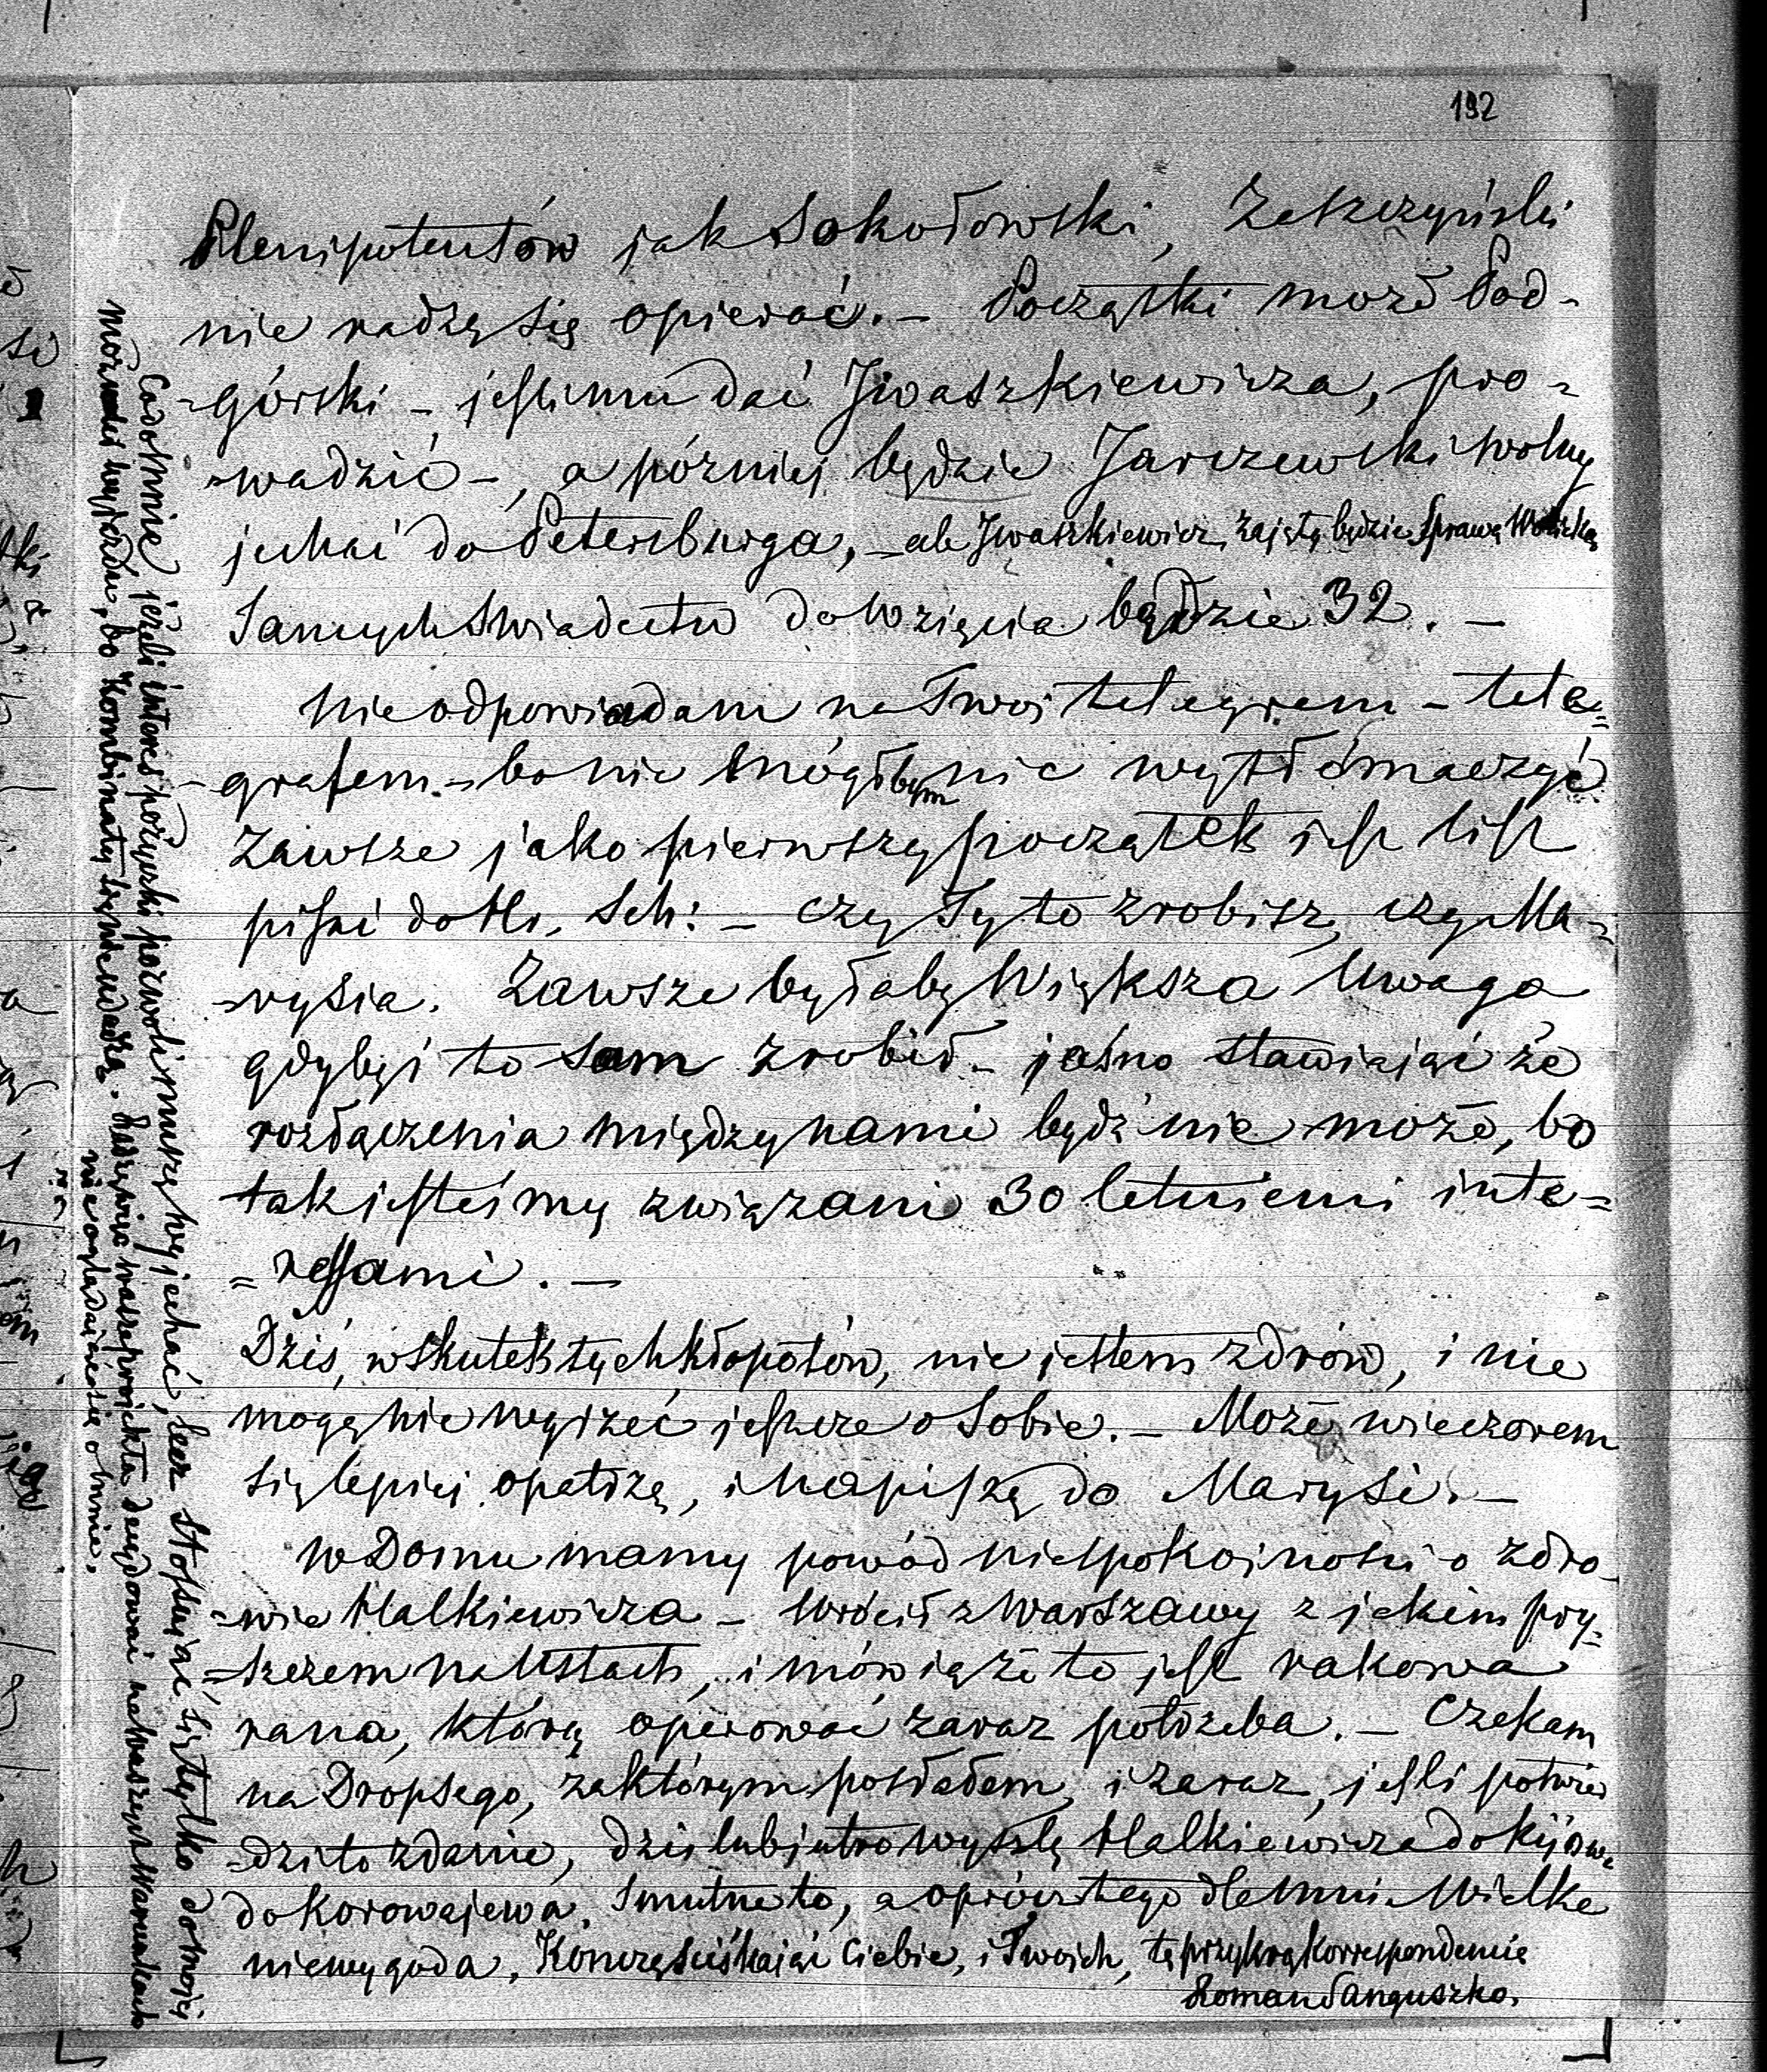 192
Plenipotentów jak Sokołowski, Zekrzyński
nie radzę się opierać. – Początki może Pod-
-górski – jeśli mu dać Iwaszkiewicza, pro-
-wadzić –, a pózniej będzie Jarczewski wolny
jechać do Petersburga, – ale Iwaszkiewicz zajęty będzie Sprawą Wolicką
Samych Swiadectw do Wzięcia będzie 32. –
Nie odpowiadam na Twój telegram – tele-
-grafem. – bo nie mógłbym nic wytłómaczyć
Zawsze jako pierwszy początek jest list
pisać do Hr. Sch: – czy Ty to zrobisz, czy Ma-
-rysia. Zawsze byłaby Większa Uwaga
gdybyś to sam zrobił – jasno stawiając że
rozłączenia między nami bydź nie może, bo
tak jesteśmy związani 30 letniemi inte-
-ressami. –
Dziś, w skutek tych kłopotów, nie jestem zdrów, i nie
mogę nic wyrzec jeszcze o Sobie. – Może wieczorem
się lepiej opatrzę, i napiszę do Marysi. –
w Domu mamy powód niespokojności o zdro-
-wie Halkiewicza – wrócił z Warszawy z jakim pry-
-szczem na Ustach, i mówią że to jest rakowa
rana, którą operować zaraz potrzeba. – Czekam
na Dropsego, za którym posłałem, i zaraz, jeśli potwier
-dzi to zdanie, dziś lub jutro wyszlę Halkiewicza do Kijowa
do Korowajewa. Smutne to, a oprócz tego dla mnie Wielka
niewygoda. Kończę Sciskając Ciebie, i Twoich, tę przykrą Korrespondencię
Roman Sanguszko.
Co do mnie jeżeli interes pożyczki pozwoli muszę wyjechać, lecz stosując się tylko do mojej
możności wyjazdu, bo Kombinaty się nie udadzą. Radzę więc wasze projekta decydować na waszych Warunkach
nie oglądając się o mnie.